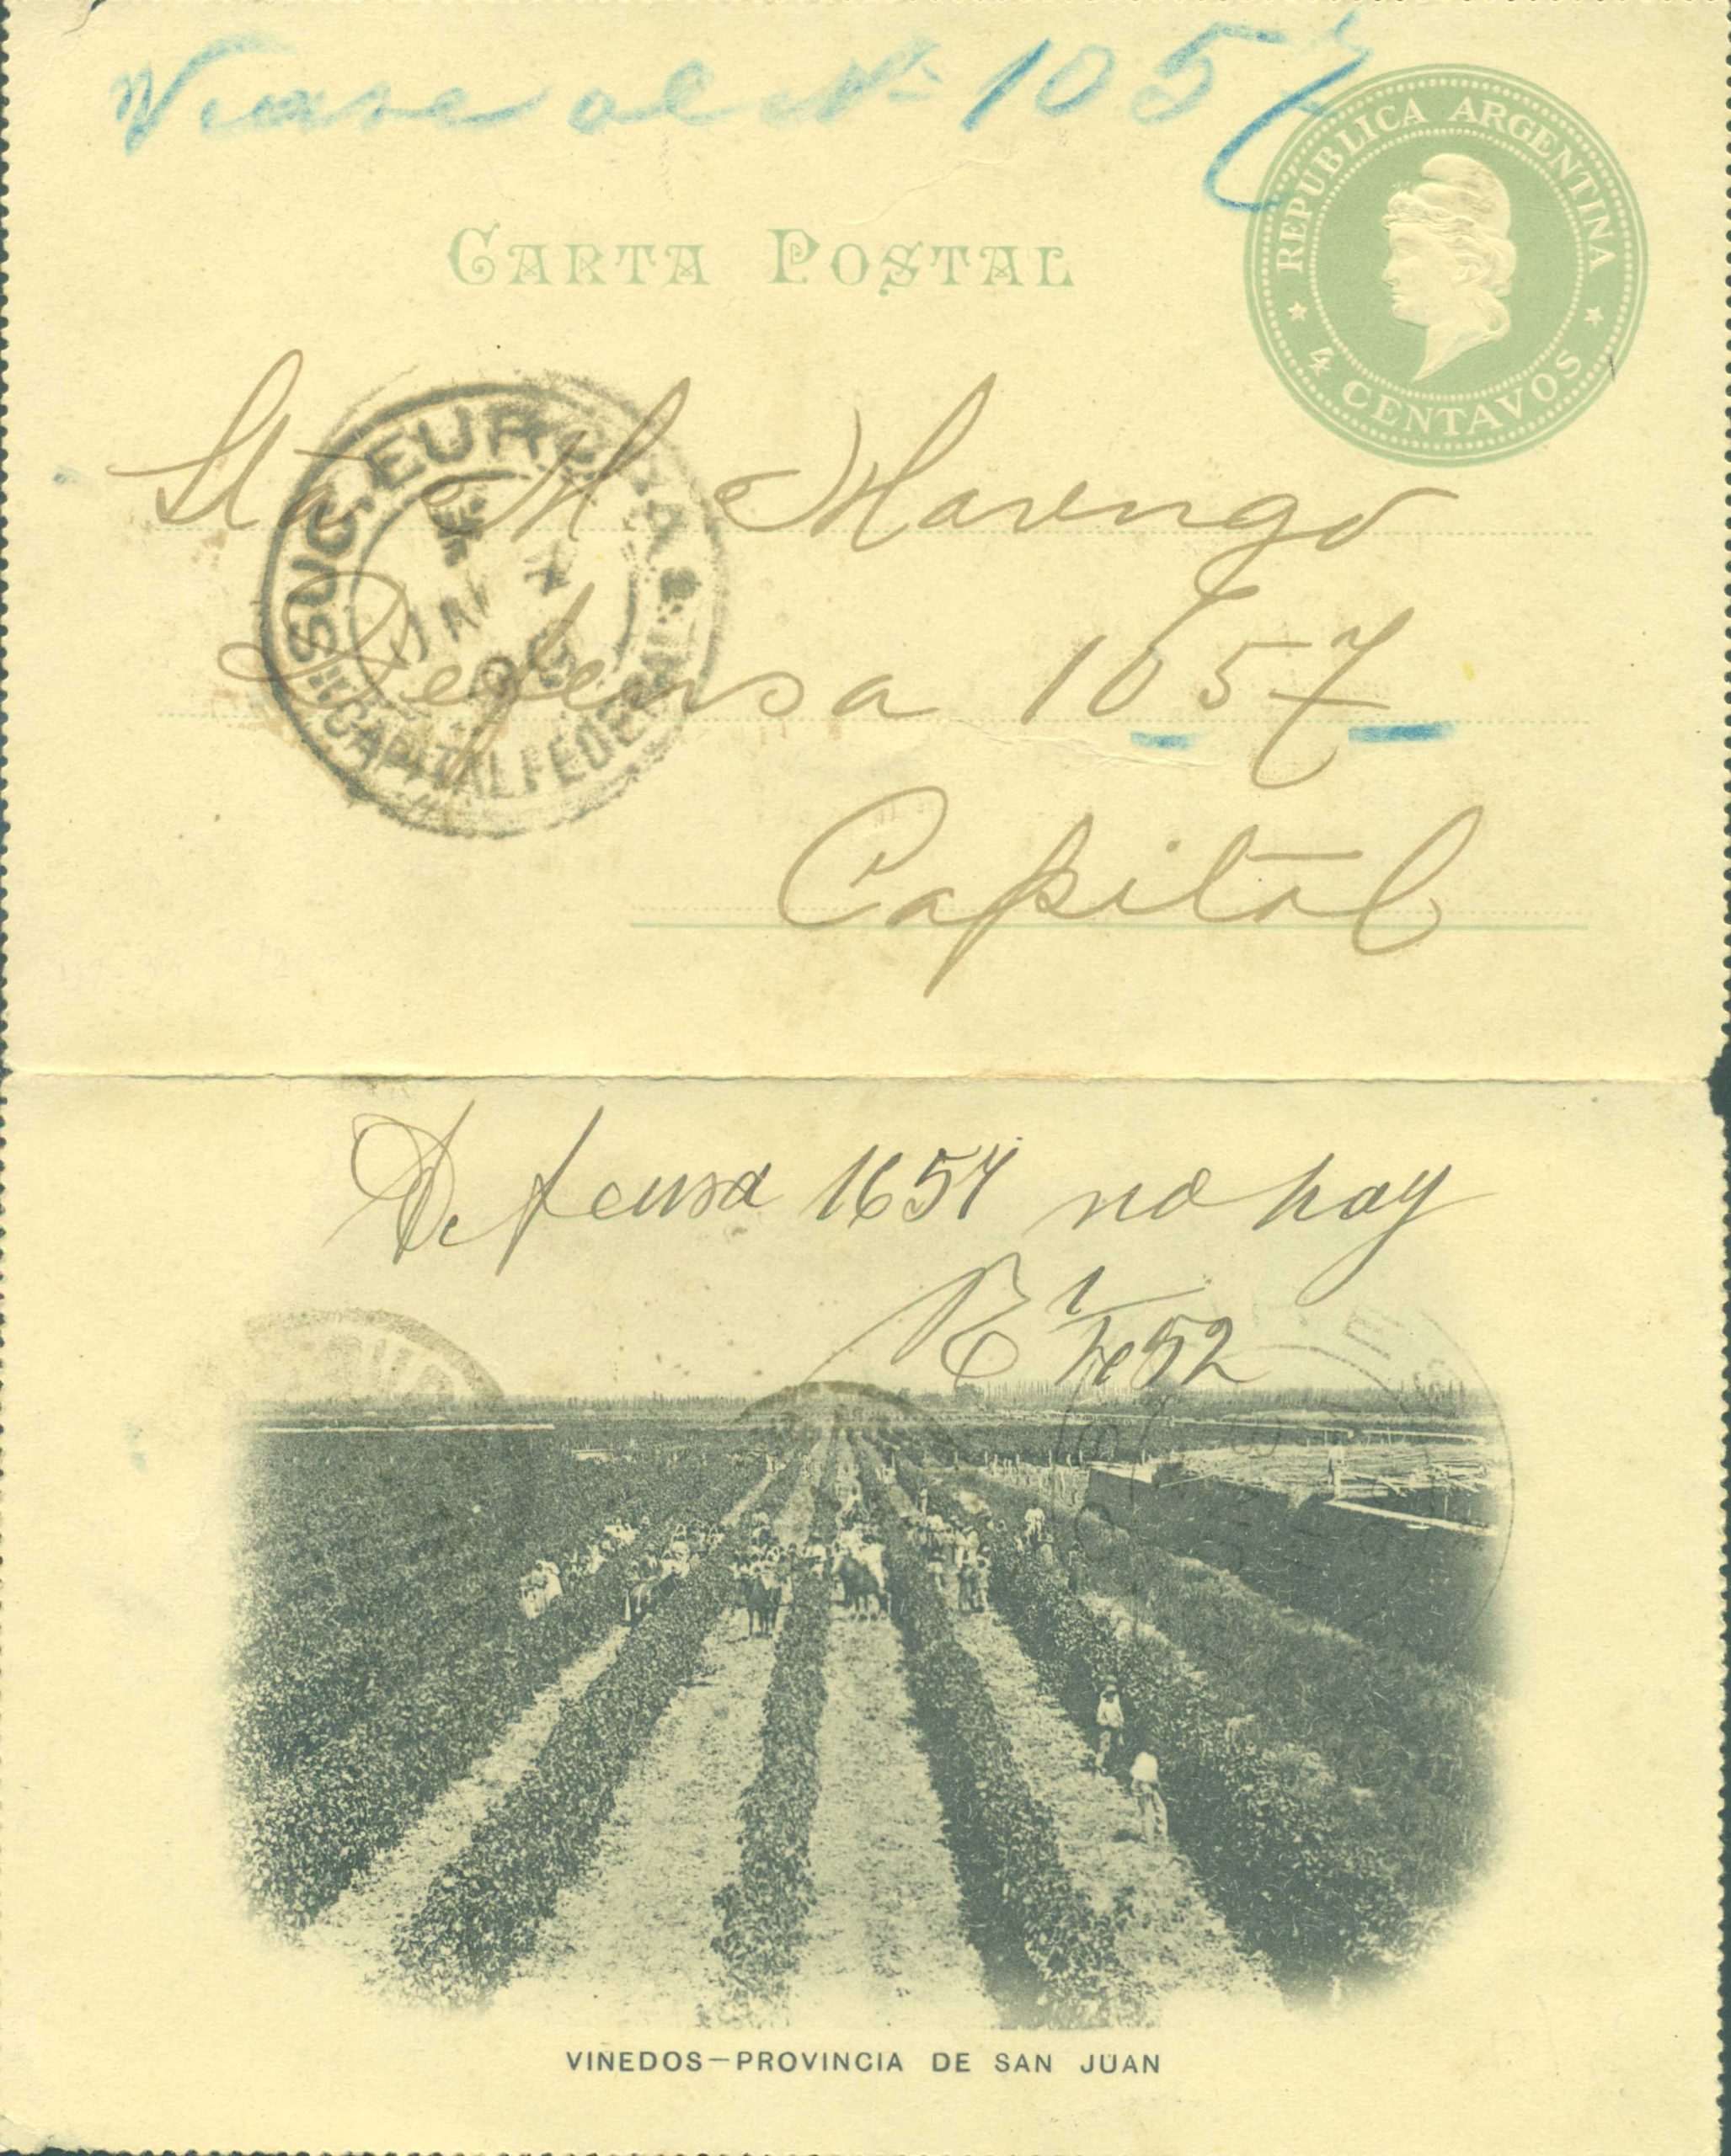 Vease al No 1057
REPUBLICA ARGENTINA
4 CENTAVOS
CARTA POSTAL
SUC. EUROPA
JAN
CAPITAL FEDERAL
Sta M Marengo
Defensa 1057
Capital
Defensa 1657 no hay
52
VIÑEDOS—PROVINCIA DE SAN JUAN